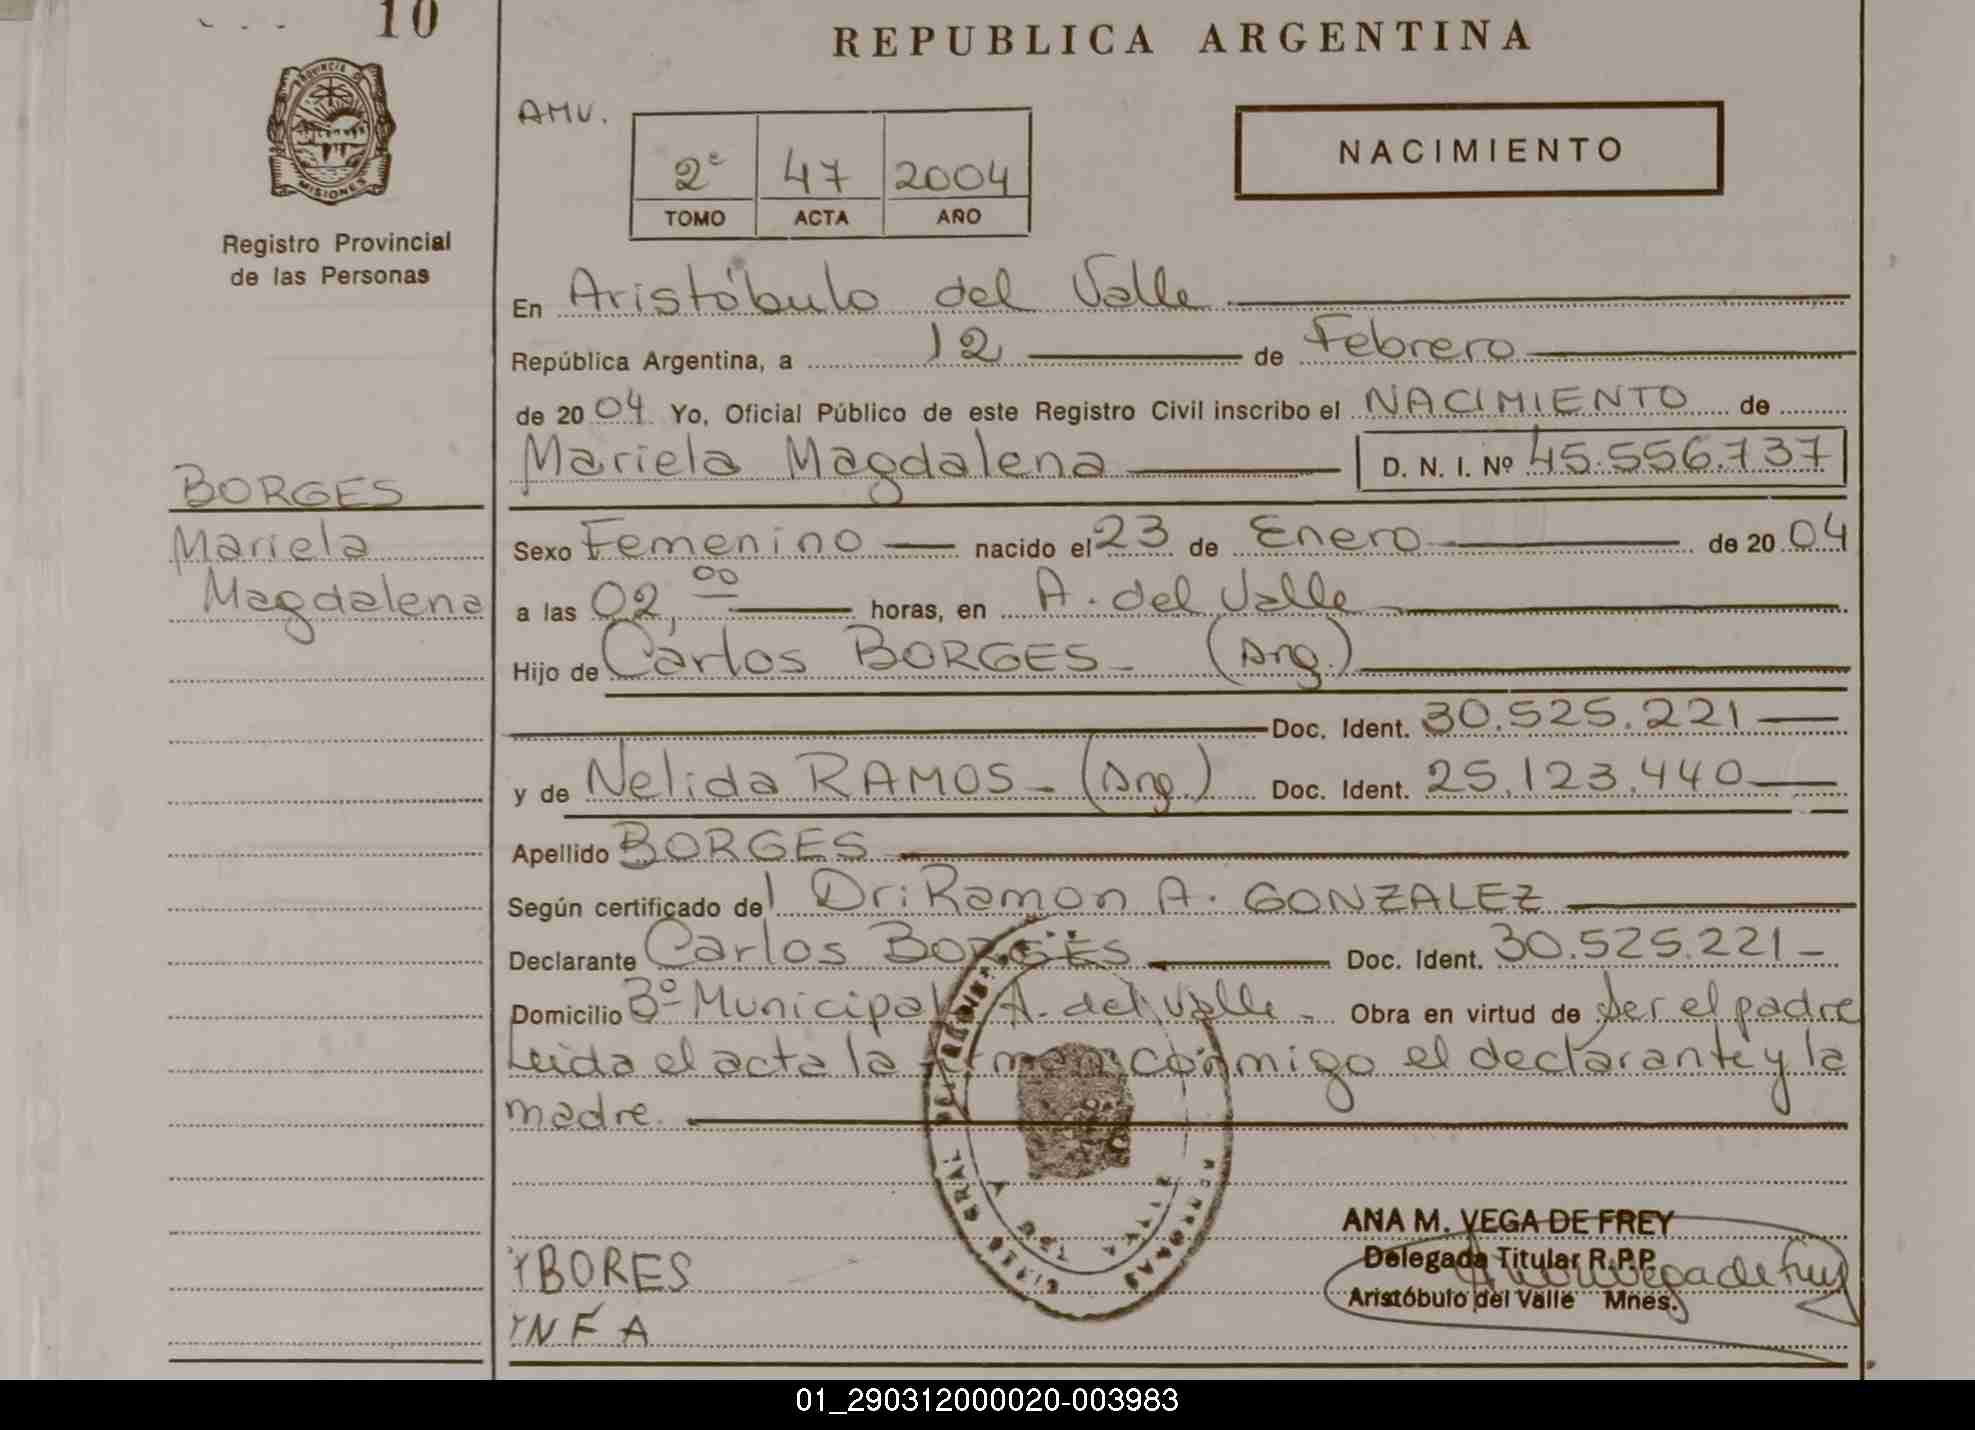 10
REPUBLICA ARGENTINA
PROVINCIA DE
MISIONES
Registro Provincial
de las Personas
AMV.
2º 47 2004
TOMO ACTA AÑO
NACIMIENTO
En Aristóbulo del Valle
República Argentina, a 12 de Febrero
de 2004 Yo, Oficial Público de este Registro Civil inscribo el NACIMIENTO de
Mariela Magdalena D. N. I. Nº 45.556.737
BORGES
Mariela
Magdalena
Sexo Femenino nacido el 23 de Enero de 2004
a las 02,00 horas, en A. del Valle
Hijo de Carlos BORGES - (Arg.)
Doc. Ident. 30.525.221
y de Nelida RAMOS - (Arg.) Doc. Ident. 25.123.440
Apellido BORGES
Según certificado del Dr: Ramon A. GONZALEZ
Declarante Carlos BORGES Doc. Ident. 30.525.221 -
Domicilio Bº Municipal A. del Valle - Obra en virtud de ser el padre
Leida el acta la firman conmigo el declarante y la
madre.
BORES
NFA
ANA M. VEGA DE FREY
Delegada Titular R.P.P.
Aristóbulo del Valle Mnes.
01_290312000020-003983